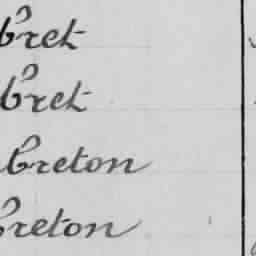 Bret
Bret
Breton
Breton